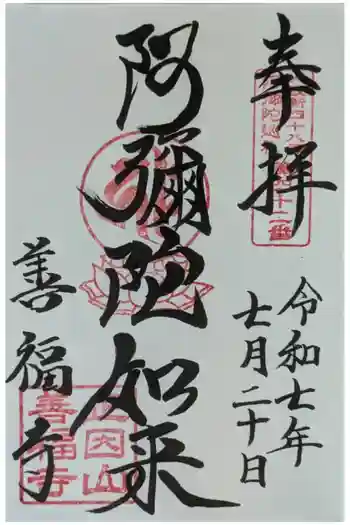 奉拝
令和七年
七月二十日
阿彌陀如来
善福寺
善福寺